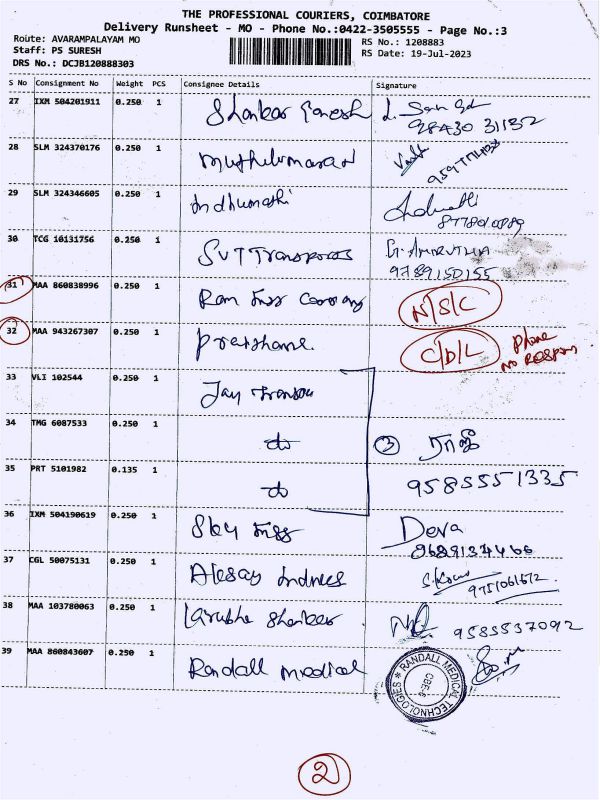 THE PROFESSIONAL COURIERS, COIMBATORE
Delivery Runsheet - MO - Phone No.:0422-3505555 - Page No.:3
Route: AVARAMPALAYAM MO
RS No.: 1208883
Staff: PS SURESH
RS Date: 19-Jul-2023
DRS No.: DCJB120888303
S No Consignment No Weight PCS Consignee Details Signature
27 IXM 504201911 0.250 1 Shankar Ganesh
98430 31132
28 SLM 324370176 0.250 1 Muthukumaran
29 SLM 324346605 0.250 1 Indhumathi
30 TCG 10131756 0.250 1 SVT Transports G. AMRUTHA
9789150155
31 MAA 860838996 0.250 1 Ram N/S/C
32 MAA 943267307 0.250 1 C/D/L Phone
NO RESPONS
33 VLI 102544 0.250 1 Jay
34 TMG 6087533 0.250 1 do 3 ராஜீ
35 PRT 5101982 0.135 1 do 9585551335
36 IXM 504190619 0.250 1 Sky Deva
37 CGL 50075131 0.250 1
9751061672
38 MAA 103780063 0.250 1 9585537092
39 MAA 860843607 0.250 1 Randall Medical
RANDALL MEDICAL TECHNOLOGIES
CBE-6
2